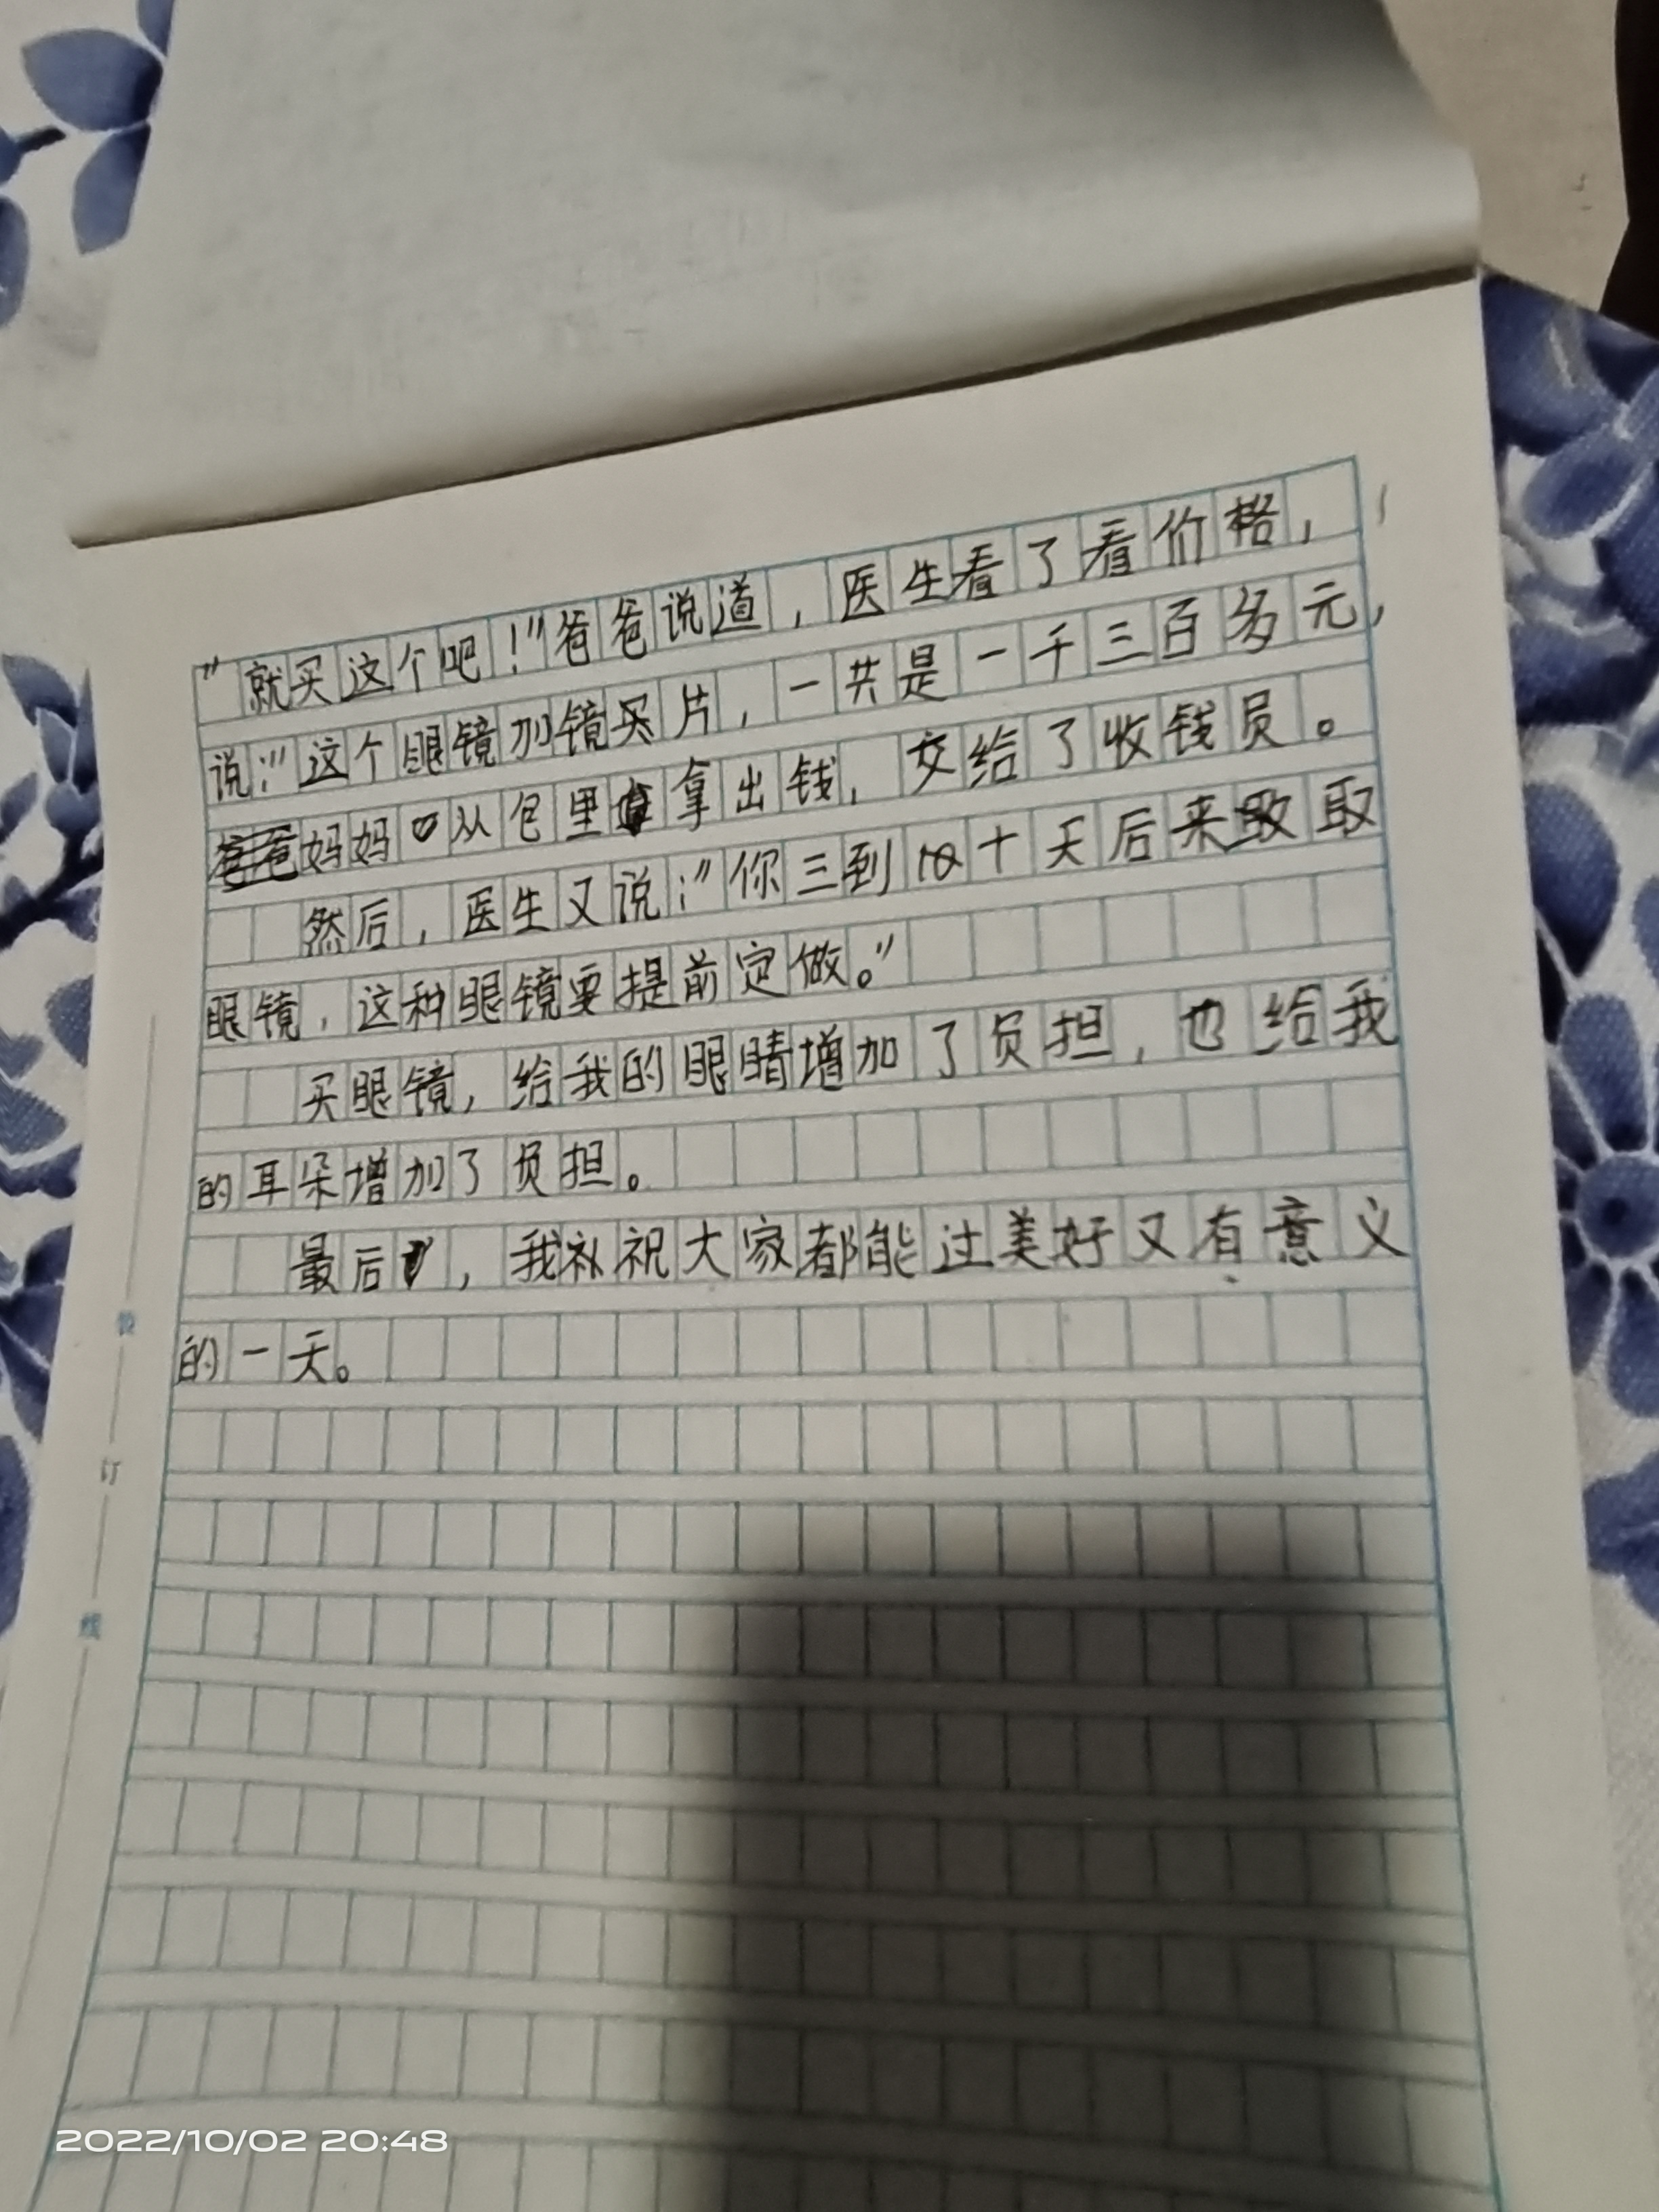 "就买这个吧！"爸爸说道，医生看了看价格，
说："这个眼镜加镜买片，一共是一千三百多元，
爸爸妈妈从包里拿出钱，交给了收钱员。
然后，医生又说："你三到10十天后来取
眼镜，这种眼镜要提前定做。"
买眼镜，给我的眼睛增加了负担，也给我
的耳朵增加了负担。
最后，我祝大家都能过美好又有意义
的一天。
装
订
线
2022/10/02 20:48